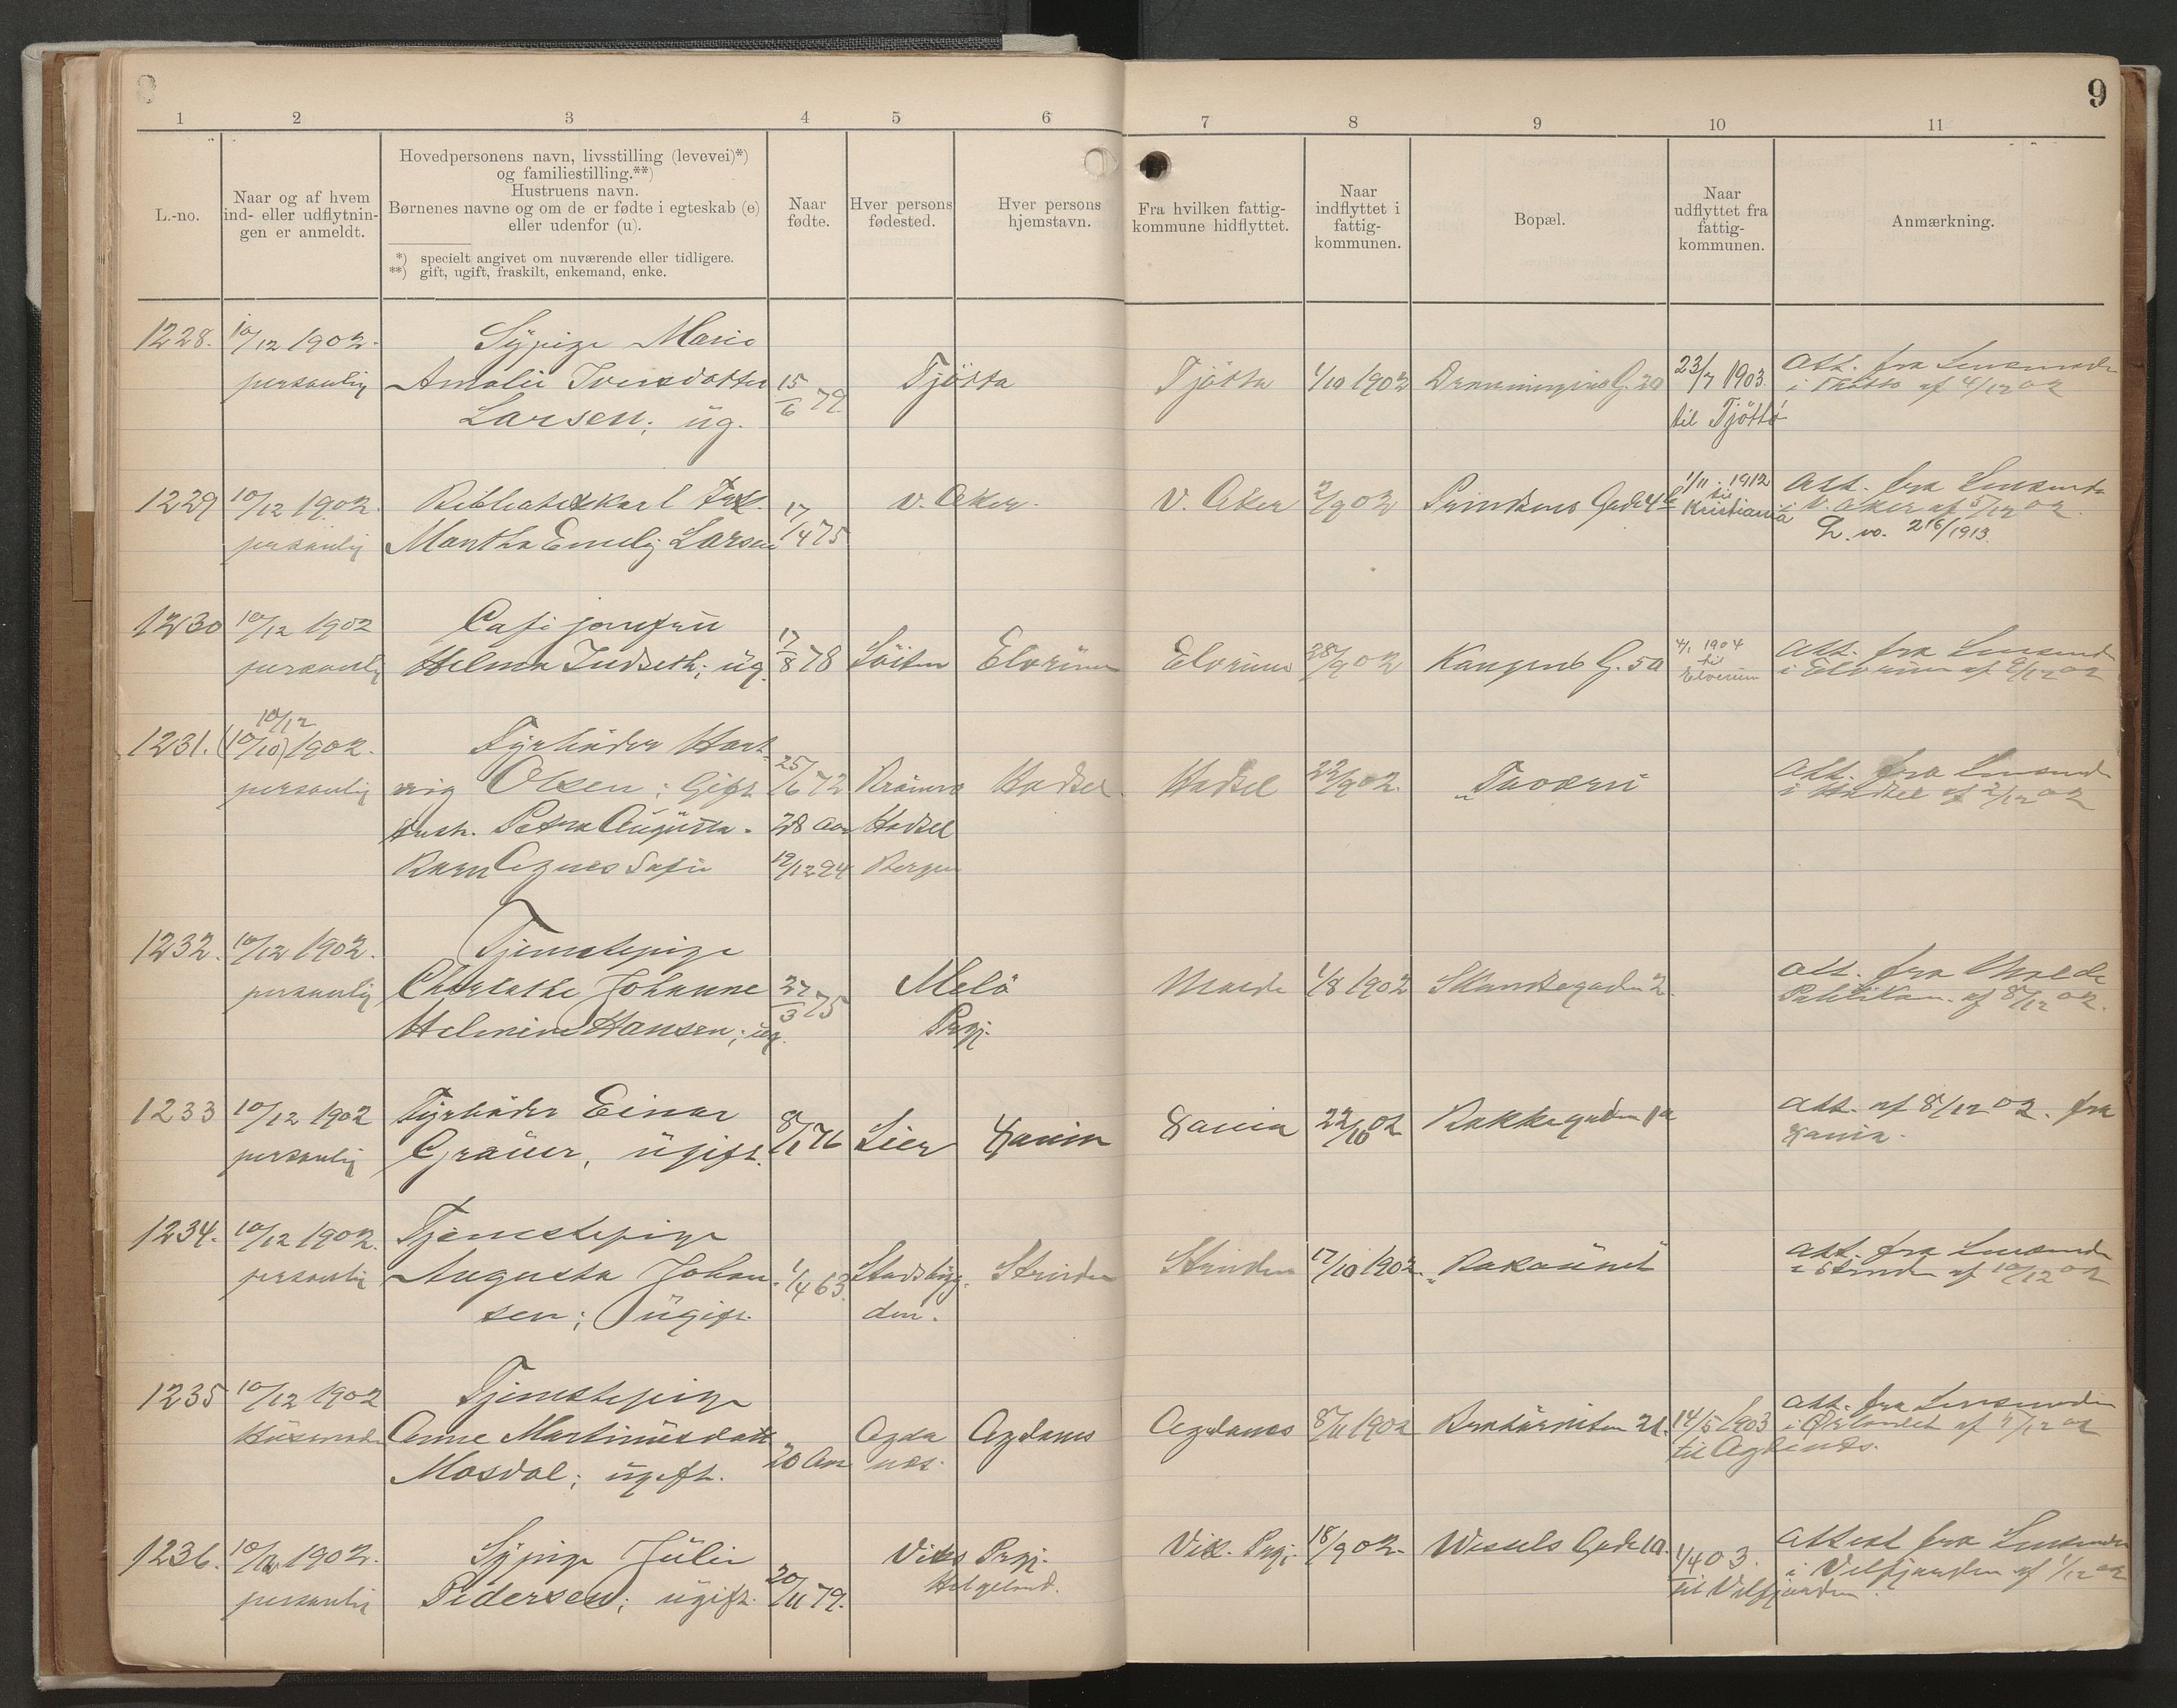 8
9
1 2 3 4 5 6 7 8 9 10 11
L.-no.
Naar og af hvem
ind- eller udflytnin-
gen er anmeldt.
Hovedpersonens navn, livsstilling (levevei)*)
og familiestilling.**)
Hustruens navn.
Børnenes navne og om de er fødte i egteskab (e)
eller udenfor (u).
*) specielt angivet om nuværende eller tidligere.
**) gift, ugift, fraskilt, enkemand, enke.
Naar
fødte.
Hver persons
fødested.
Hver persons
hjemstavn.
Fra hvilken fattig-
kommune hidflyttet.
Naar
indflyttet i
fattig-
kommunen.
Bopæl.
Naar
udflyttet fra
fattig-
kommunen.
Anmærkning.
1228. 10/12 1902. Sypige Marie
personlig Amalie Iversdatter 15/6 79. Tjötta Tjötta 1/10 1902 Dronningens G. 20 23/7 1903. Att. fra Lensmanden
Larsen; ug. til Tjöttö i Tjöttö af 4/12 02
1229 10/12 1902. Bibliotekkarl
personlig Martha Emely Larsen 17/4 75 V. Aker. V. Aker 2/9 02 Prindsens Gade 1/11. 1912 til Kristiania Att. fra Lensmanden
V. Aker af 5/12 02.
L. no. 216/1913.
1230 10/12 1902 Cafejomfru
personlig Helma Indseth; ug. 17/8 78 Löiten Elverum Elverum 28/9 02 Kongens G. 50 4/1 1904 til Elverum Att. fra Lensmanden
i Elverum af 9/12 02
1231. 10/12
(10/10) 1902. Fyrböder Hart-
personlig vig Olsen; Gift 25/6 72 Hadsel Hadsel 22/9 02. Att. fra Lensmanden
i Hadsel af 2/12 02
Hustr. Petra Augusta. 28 Aar Hadsel
Barn Agnes Sofie 19/12 94 Bergen
1232. 10/12 1902. Tjenestepige
personlig Charlotte Johanne 27/3 75 Melö Molde 1/8 1902 2. Att. fra Molde
Helmine Hansen; ug. Prgj. Politikam. af 8/12 02.
1233 10/12 1902 Fyrböder Einar
personlig Gräuer, ugift. 8/1 76 Lier Xania Xania 22/10 02 Bakkegaden 1a Att. af 8/12 02. fra
Xania.
1234. 10/12 1902. Tjenestepige
personlig Augusta Johan- 1/4 63. Stadsbygd- Strinden Strinden 17/10 1902. Att. fra Lensmanden
sen; ugift. den. i Strinden af 10/12 02
1235 10/12 1902 Tjenestepige
Anne Martinusdatt. 20 Aar Agda- Agdanes Agdenes 8/11 1902 21. 14/5 1903 Att. fra Lensmanden
Mosdal; ugift. nes. til Agdenes. i Örlandet af 9/12 02
1236. 10/12 1902. Sypige Julie
personlig Pedersen; ugift. 20/11 79. Viks Prgj. Vik. Prgj. 18/9 02. Wessels Gade 10. 1/4 03. Attest fra Lensmanden
Helgeland. til Velfjorden. i Velfjorden af 1/12 02